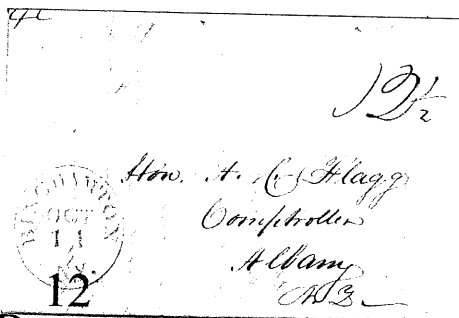 12½
Hon. A. C. Flagg
Comptroller
Albany
N.Y.
BINGHAMPTON
OCT
11
N.Y.
12